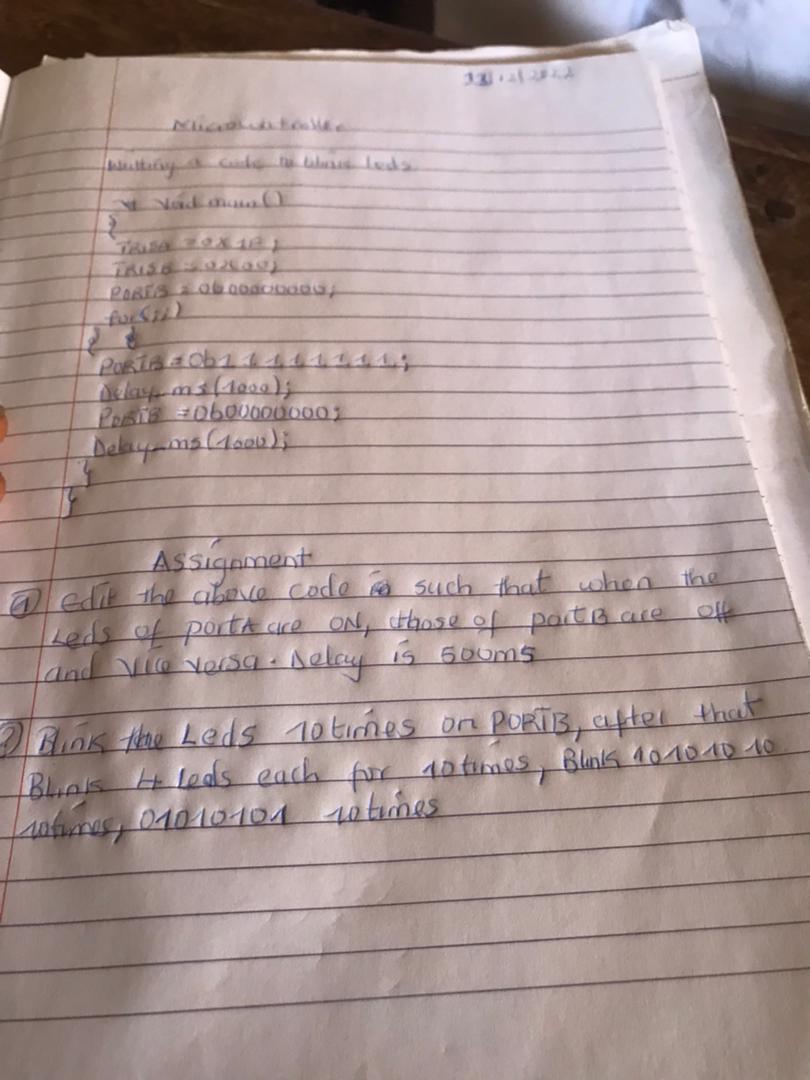 12/2022
Microcontroller
Writting a code to blink leds
void main()
{
TRISA = 0X1F;
TRISB = 0X00;
PORTB = 0b00000000;
for(;;)
{
PORTB = 0b11111111;
Delay_ms(1000);
PORTB = 0b00000000;
Delay_ms(1000);
}
}
Assignment
① edit the above code such that when the
Leds of portA are ON, those of portB are off
and Vice versa. Delay is 500ms
② Blink the Leds 10times on PORTB, after that
Blink 4 leds each for 10times, Blink 10101010
10times, 01010101 10times